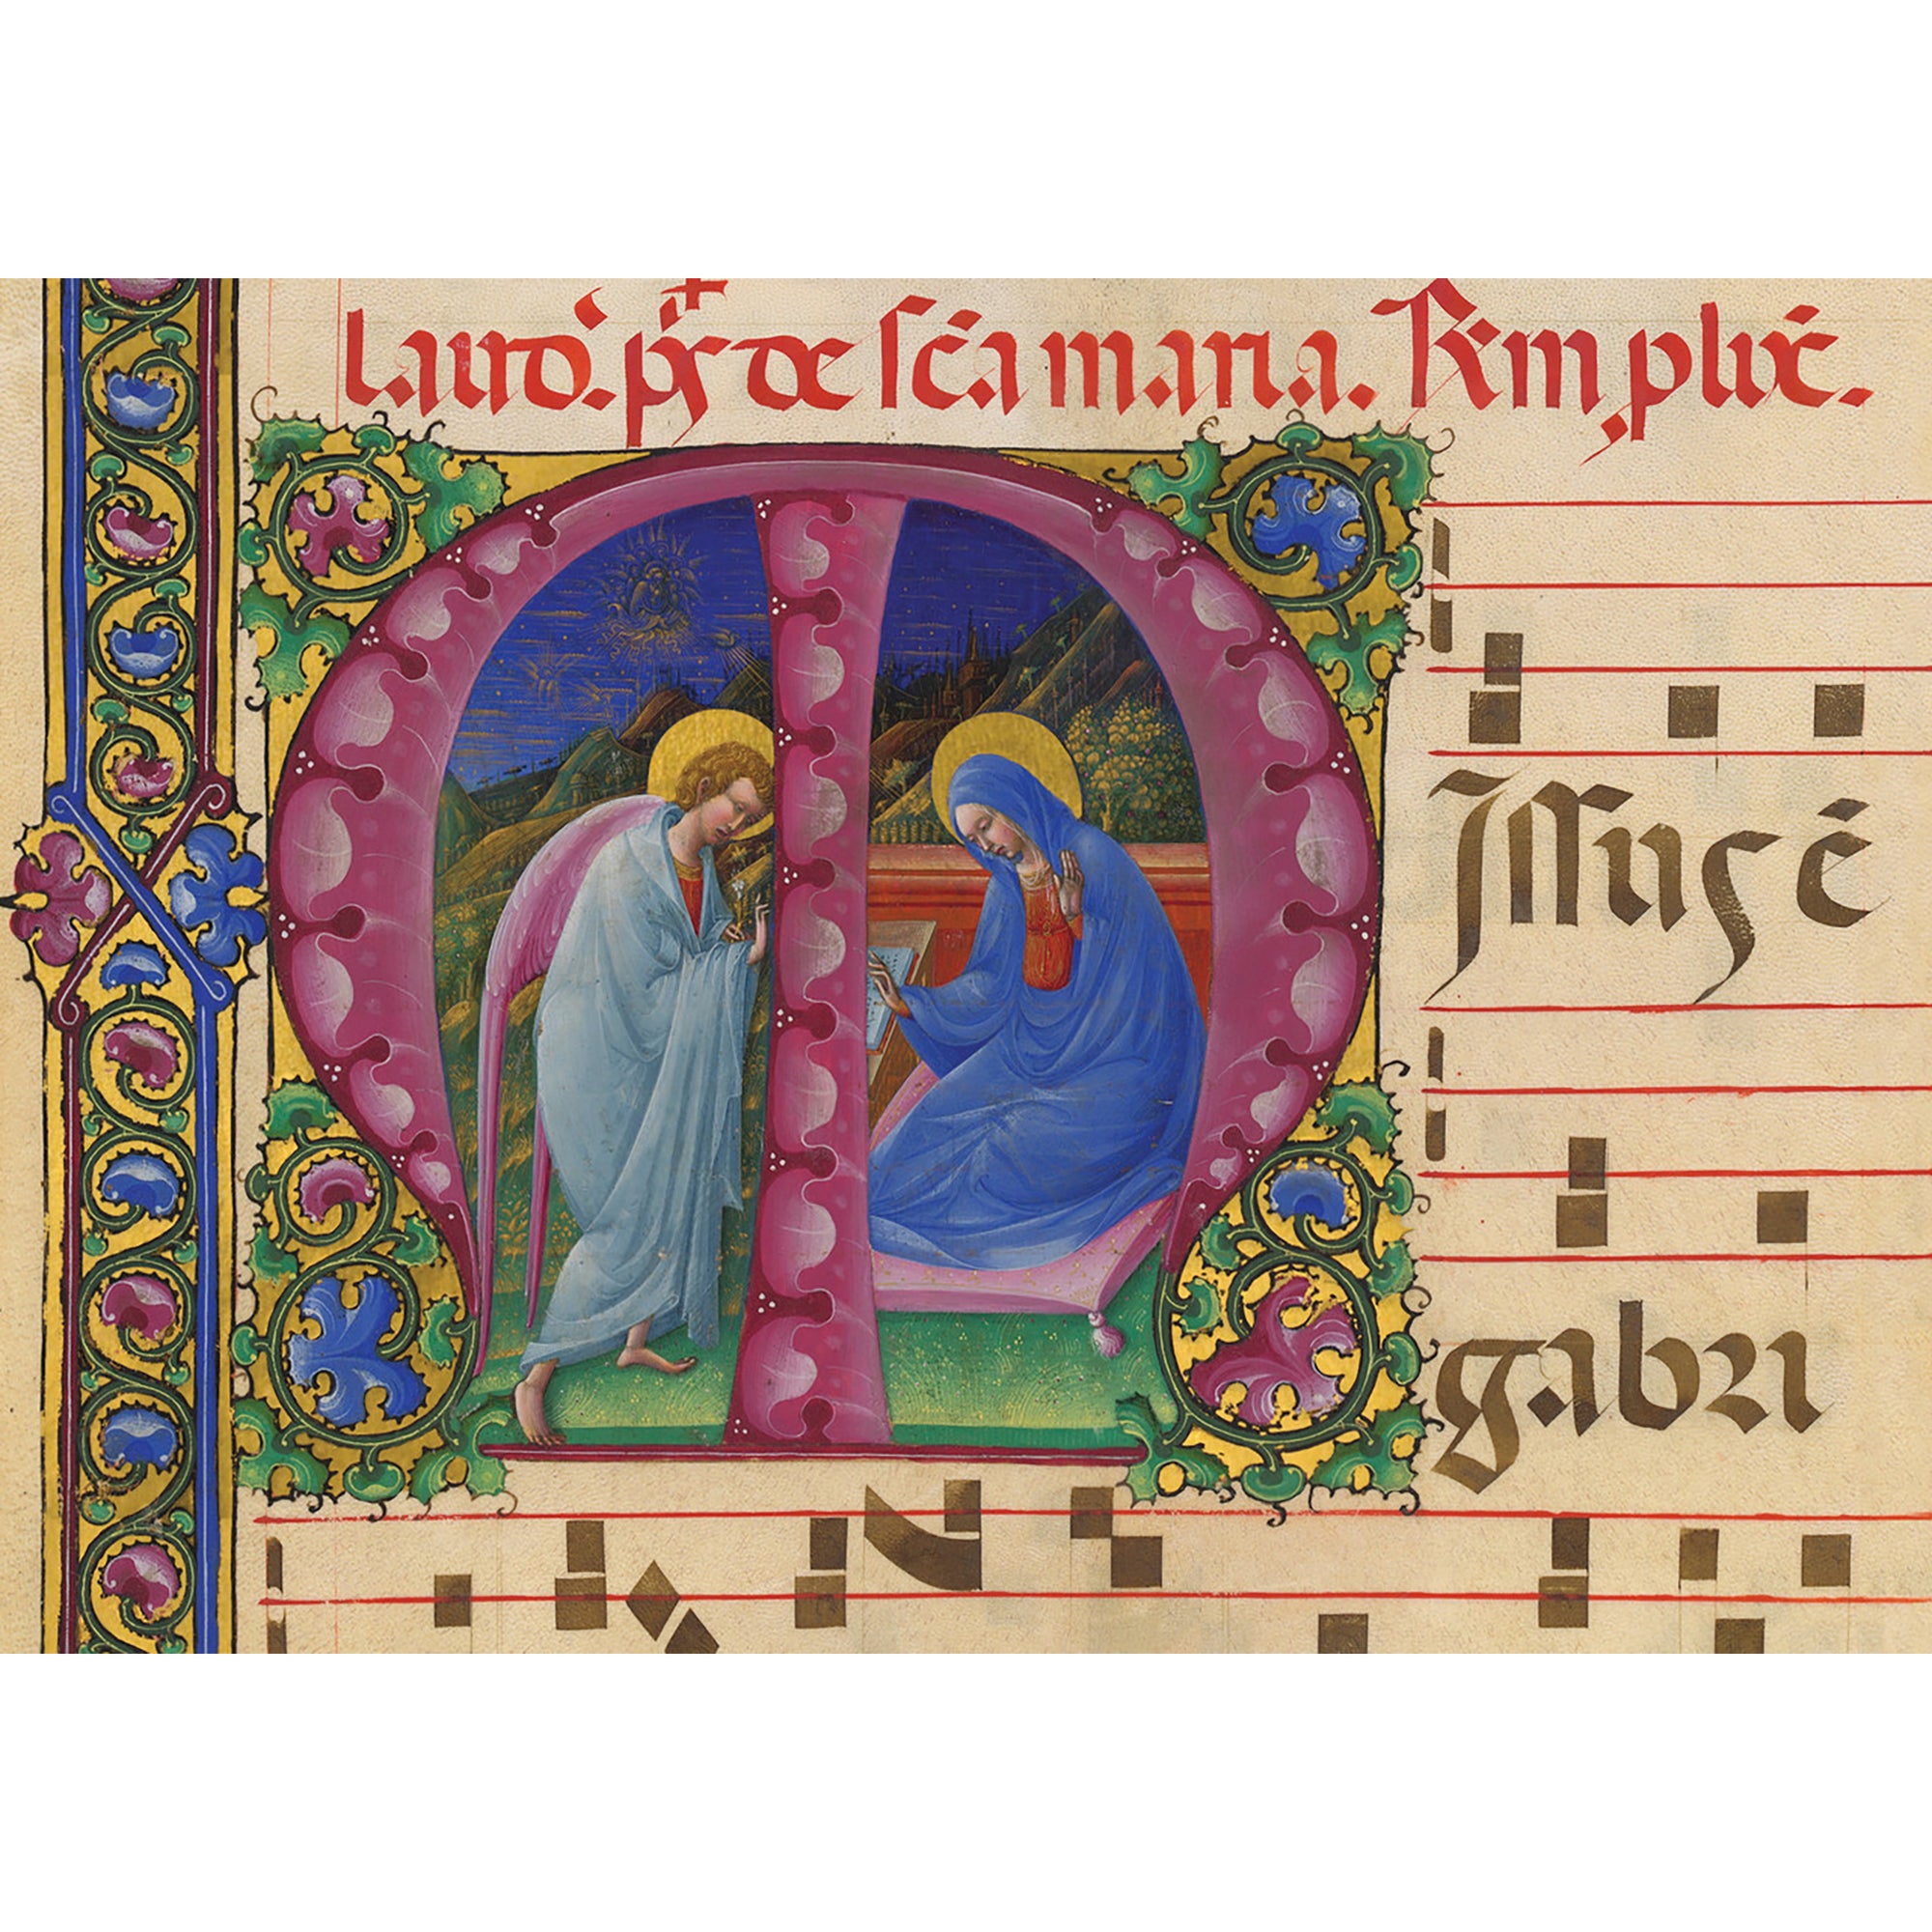 laud. ps de sc̄a maria.
Missus ē
gabri